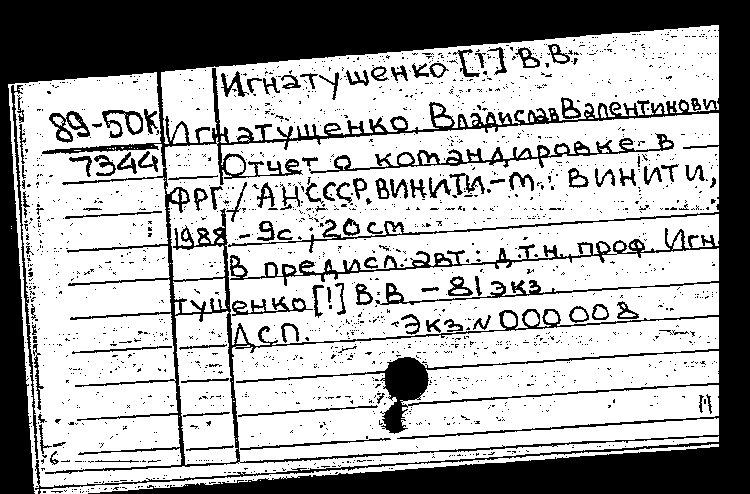 Игнатущенко [!] В.В.
89-50К Игнатущенко, Владислав Валентинови
7344 Отчет о командировке в
ФРГ / АН СССР, ВИНИТИ. - М.: ВИНИТИ,
1988 - 9с.; 20 cm
В предисл. авт.: д.т.н., проф. Игн
тущенко [!] В.В. - 81 экз.
ДСП. Экз. N 000008
6